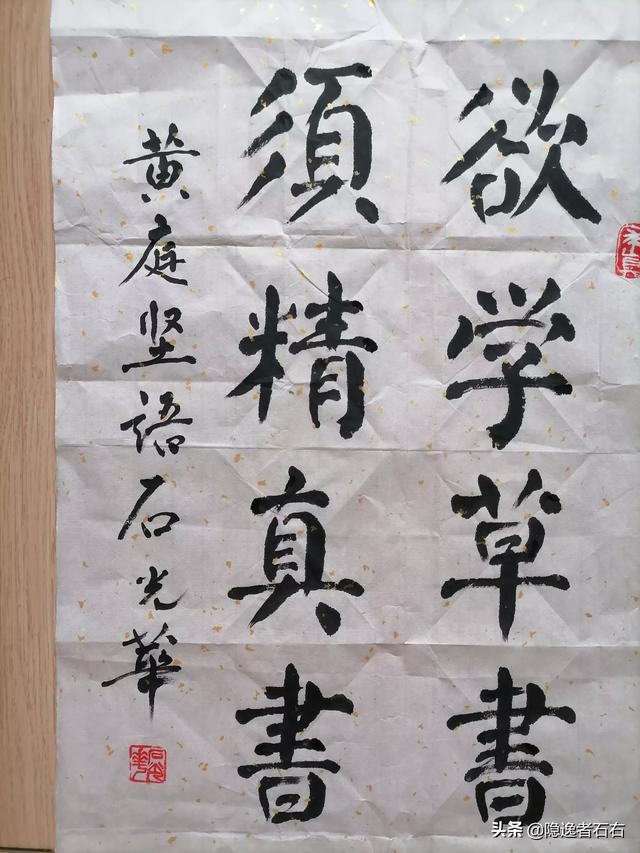 欲学草書
須精真書
黄庭坚語石光華
头条 @隐逸者石右